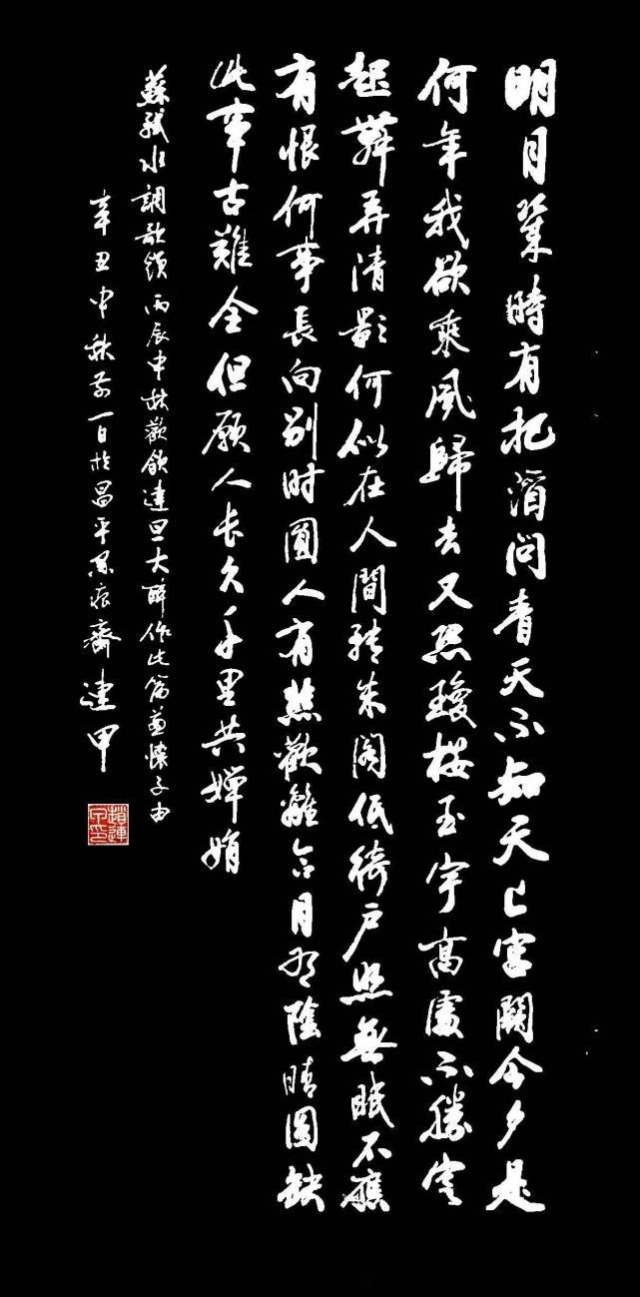 明月幾時有把酒問青天不知天上宮闕今夕是
何年我欲乘風歸去又恐瓊楼玉宇高處不勝寒
起舞弄清影何似在人間轉朱閣低綺戶照無眠不應
有恨何事長向别时圓人有悲歡離合月有陰晴圓缺
此事古難全但願人长久千里共嬋娟
蘇軾水調歌頭 丙辰中秋歡飲達旦大醉作此篇兼懷子由
辛丑中秋前一日於昌平墨痕齋連甲
趙連甲印